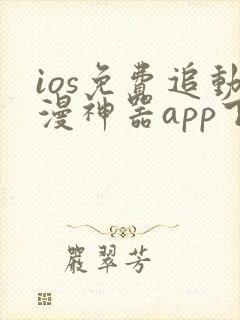 ios免費追動
漫神器app下
嚴翠芳